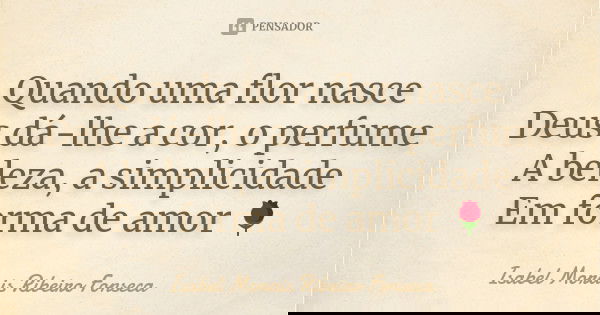 PENSADOR
Quando uma flor nasce
Deus dá-lhe a cor, o perfume
A beleza, a simplicidade
Em forma de amor
Isabel Morais Ribeiro Fonseca